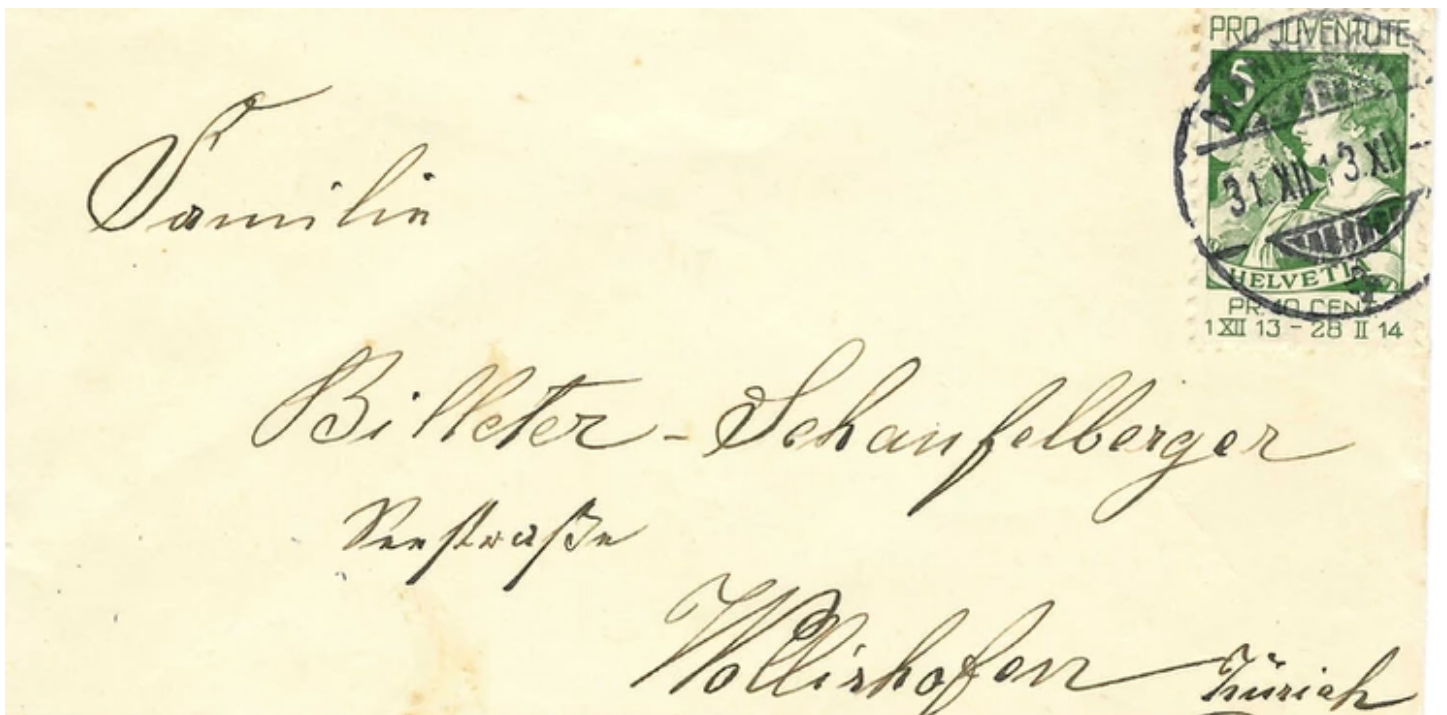 PRO JUVENTUTE
5
31. XII 13. XI
HELVETIA
PR. 10 CENT.
1 XII 13 - 28 II 14
Familie
Billeter - Schaufelberger
Seestraße
Wollishofen Zürich